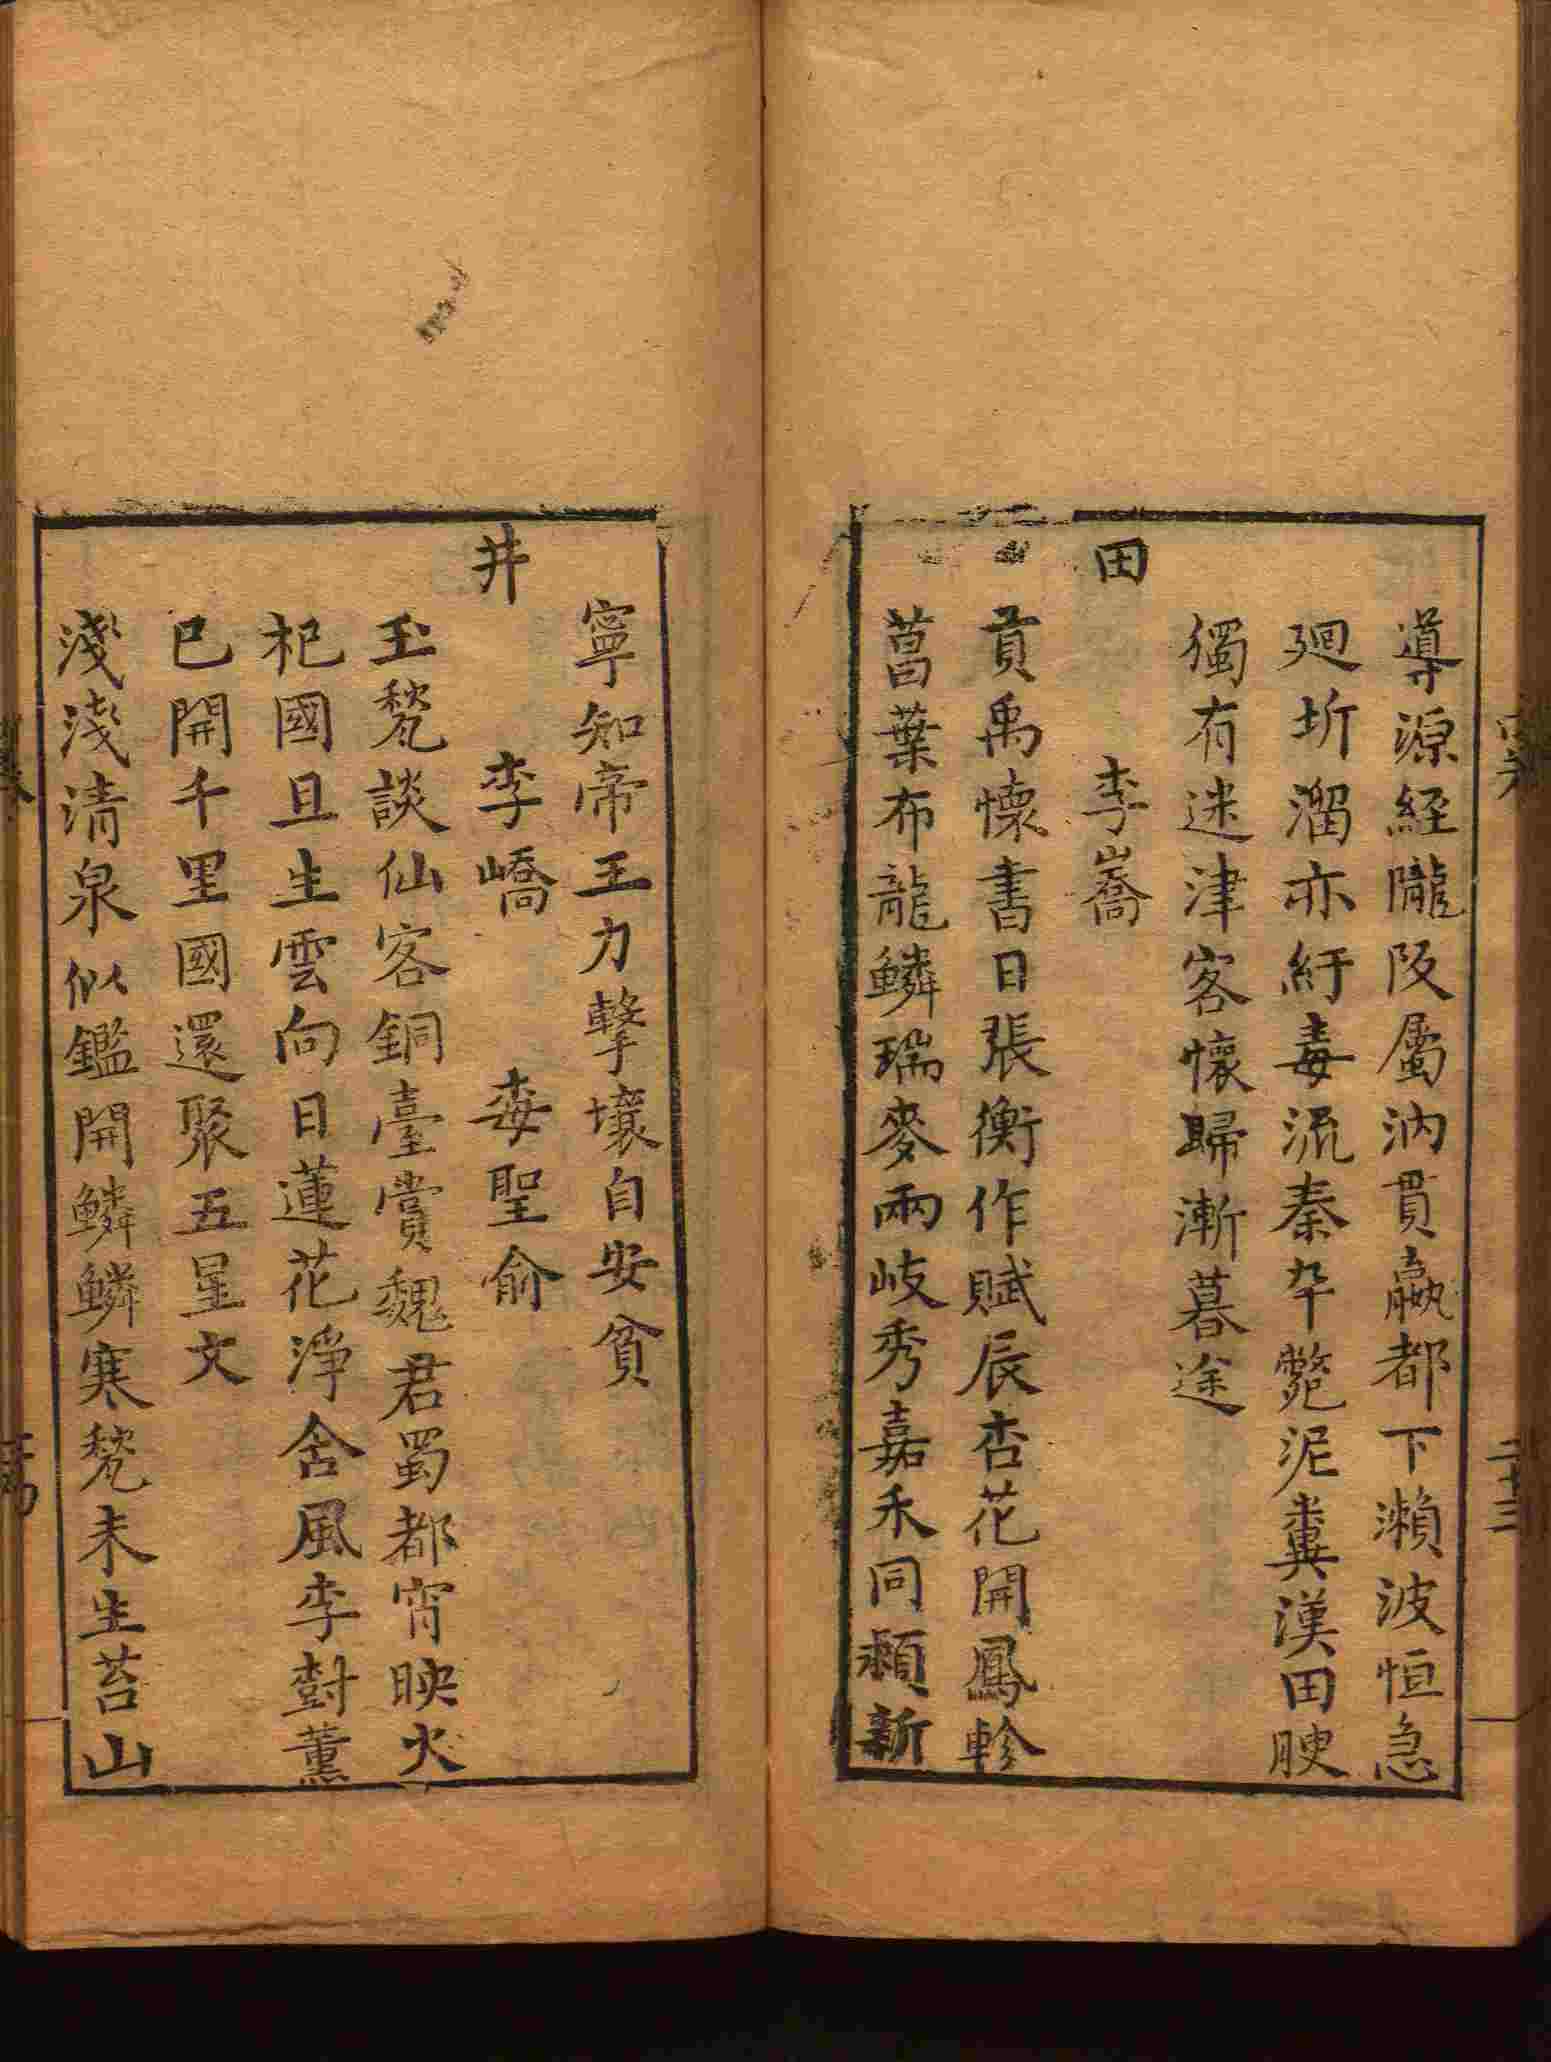 導源経隴阪屬汭貫嬴都下瀨波恒急
廻圻溜亦紆毒流秦卒斃泥糞漢田腴
獨有迷津客懷歸漸暮途
田
李嶠
貢禹懷書日張衡作賦辰杏花開鳳軫
菖葉布龍鱗瑞麥兩岐秀嘉禾同穎新
寧知帝王力擊壤自安貧
井
李嶠 𣑱聖俞
玉甃談仙客銅臺賞魏君蜀都宵映火
杞國旦生雲向日蓮花淨含風李對薰
已開千里國還聚五星文
淺淺清泉似鑑開鱗鱗寒甃未生苔山
二十三